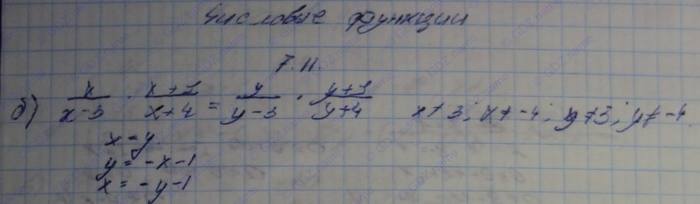 Числовые функции
7.11.
б) x/(x-3) · (x+1)/(x+4) = y/(y-3) · (y+1)/(y+4) x≠3; x≠-4; y≠3; y≠-4
x=y.
y=-x-1
x=-y-1